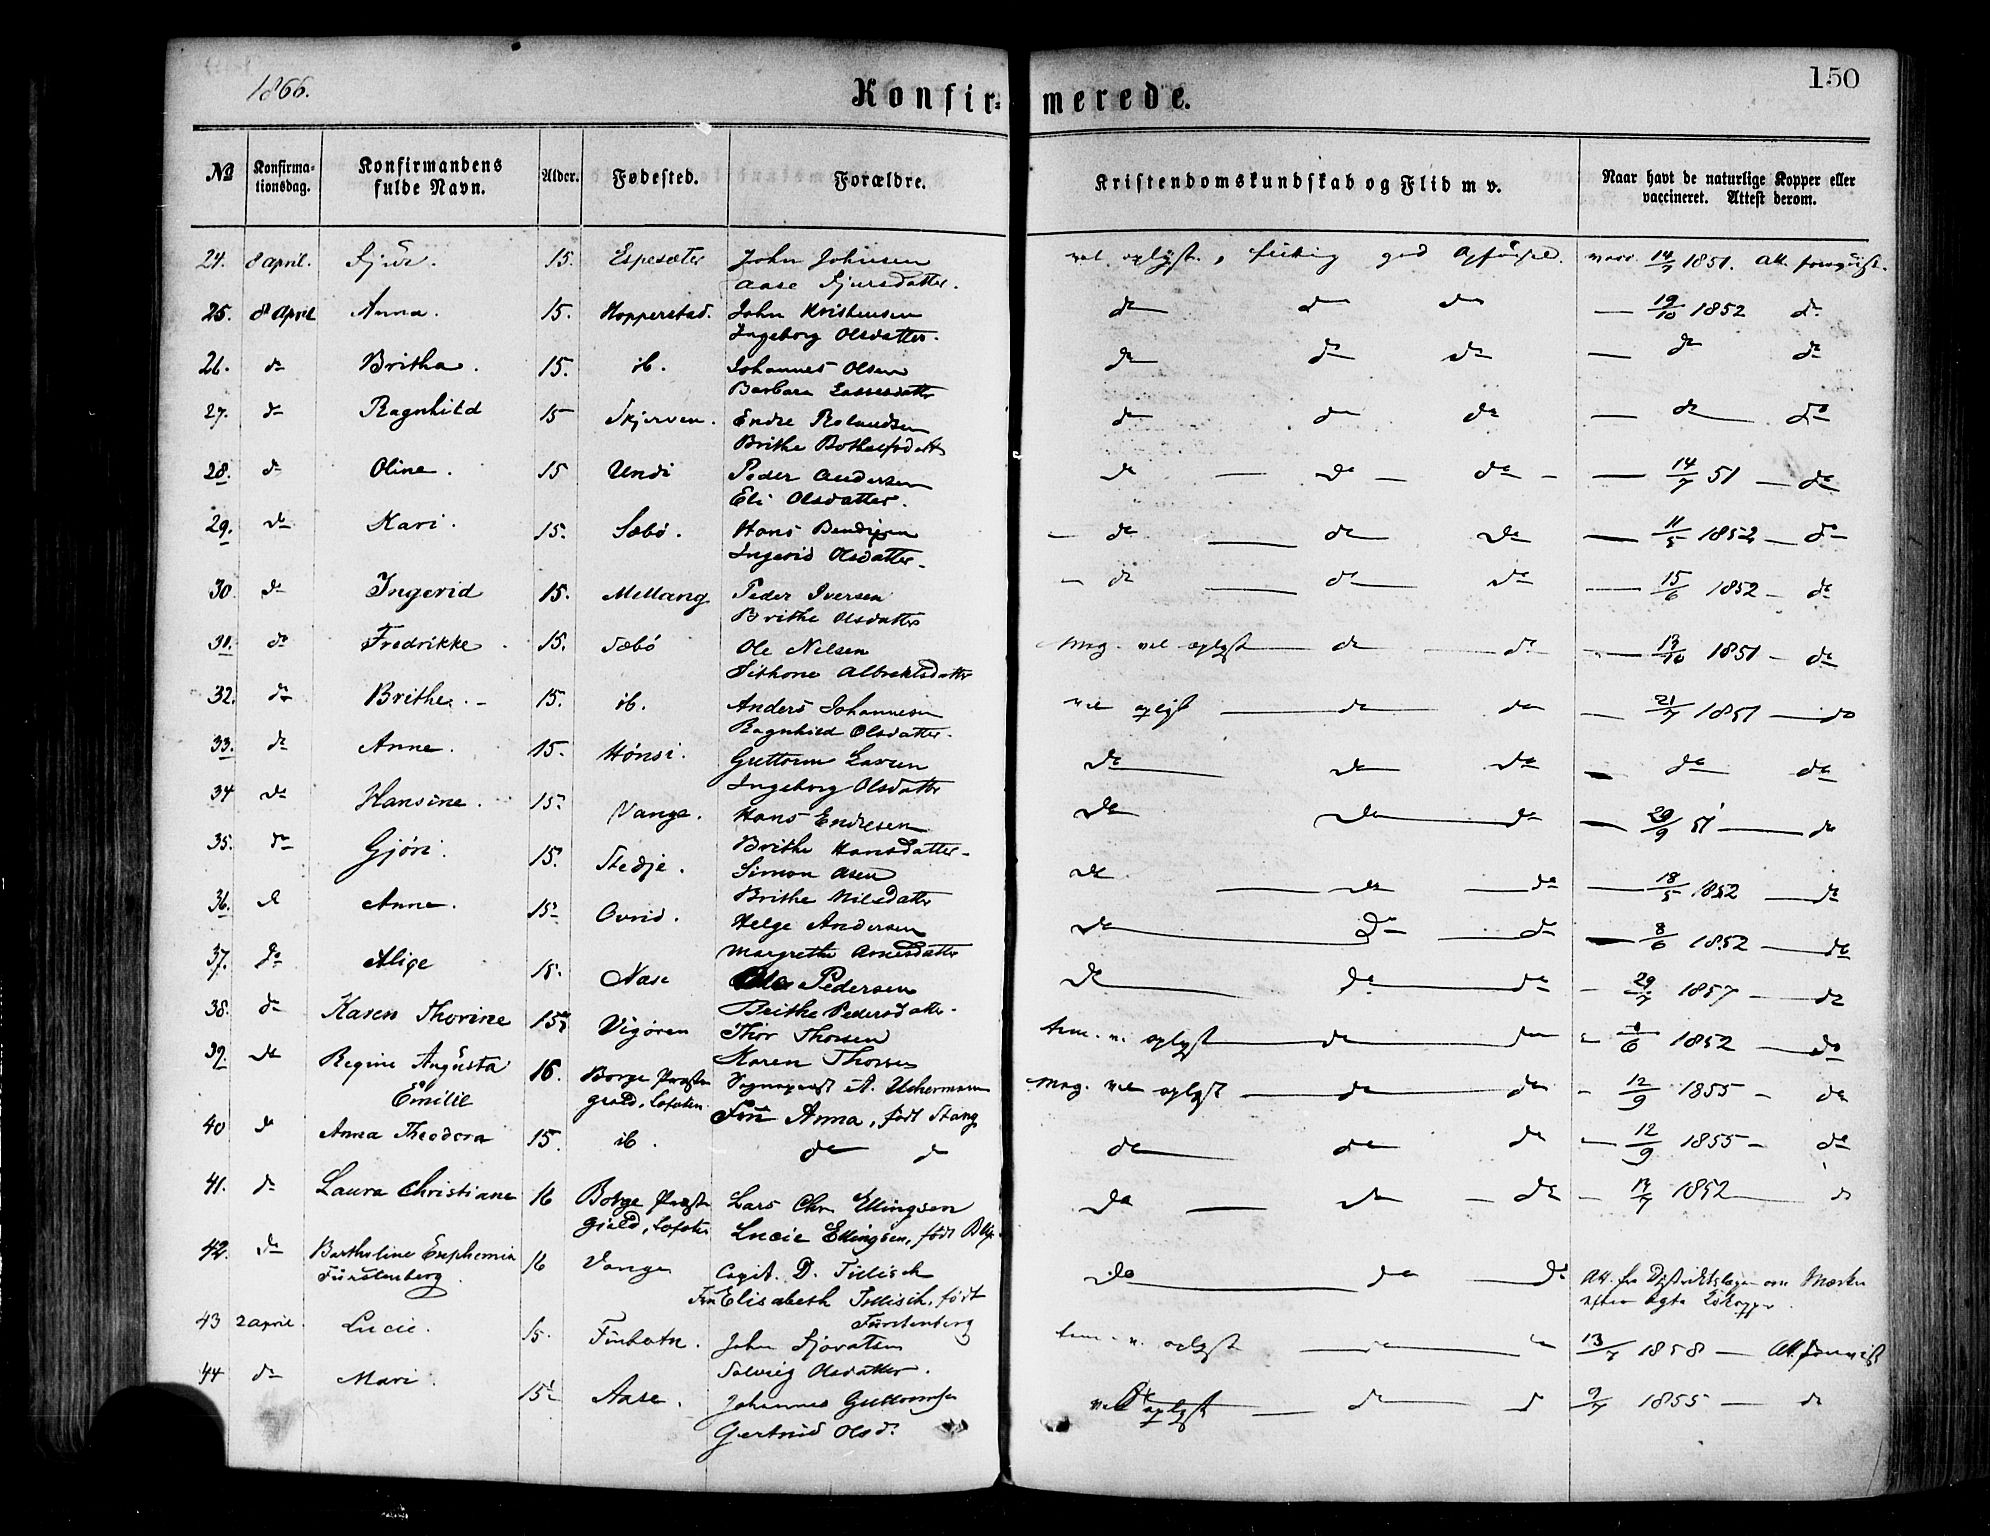 1866.
Konfir- merede.
150
No
Konfirma-
tionsdag.
Konfirmandens
fulde Navn.
Alder.
Fødested.
Forældre.
Kristendomskundskab og Flid m v.
Naar havt de naturlige Kopper eller
vaccineret. Attest derom.
24. 8 april. 15. Espesæter John Johnsen vel oplyst, god 14/7 1851. Att.
Aase Sjursdatter.
25. 8 April Anna. 15. Hopperstad. John do do do — 19/10 1852 do
Ingeborg Olsdatter.
26. do Britha. 15. ib. Johannes Olsen do do do — do do
Barbara Lassesdatter
27. do Ragnhild 15 Skjerven. Endre Rolandsen do do do — do do
Brithe
28. do Oline. 15 Undi Peder Andersen do — do — do — — 14/7 51 — do
Eli Olsdatter.
29. do Kari. 15. Sæbø. Hans Bendixen — do — do do — 11/5 1852 — do
Ingerid Olsdatter.
30 do Ingerid 15. Mellang Peder Iversen — do — do — do — 15/6 1852 — do
Brithe Olsdatter
31. do Fredrikke. 15. Sæbø Ole Nilsen Meg. vel oplyst — do — do — 1851 — do
Albrektsdatter
32. do Brithe. 15. ib. Anders Johannesen vel oplyst — do do — 21/7 1851 — do
Ragnhild Olsdatter.
33. do Anne. 15. Hønsi. Guttorm do — do do — do do
Ingeborg Olsdatter
34 do Hansine. 15. Vange. Hans Endresen do do — do — 29/9 51 — do
Brithe Hansdatter
35. do Gjøri. 15. Stedje. Simon do — do — do — 18/5 1852 — do
Brithe Nilsdatter
36. do Anne. 15 Ovrid. Helge Andersen do — do — do — 8/6 1852 — do
Margrethe Arnesdatter
37. do 15. Nase Pedersen do — do — do — 29/7 1857 — do
Brithe Pedersdatter.
38. do Karen Thorine 15 Vigøren Thor Thorsen oplyst — do — do 1852 — do
Karen
39. do Regine Augusta 16. Borge Præste Sognepræst Uchermann Meg. vel oplyst — do — do — 12/9 1855 — do
Emilie gjæld, Lofoten Fru Anna, født Stang
40 do Anna Theodora 15. ib. do do do — do do — 12/9 1855 — do
41. do Laura Christiane 16 Borge Præste Lars Chr. Ellingsen do — do — do — 1852 — do
gjæld, Lofoten Lucie Ellingsen, født
42. do Bartholine Euphemia 16 Vange Capit. D. Tillisch do — do — do Att. fra Distriktslægen om Mærker
Fürstenberg Fru Elisabeth Tillisch, født
Fürstenberg
efter ægte
43 2 april. Lucie. 15. Finbotn. John oplyst — do 13/7 1858 — Att. forevist
Solveig Olsdatter.
44 do Mari. 15 Aase. Johannes Guttormsen vel oplyst — do — do 9/7 1855 — do
Gertrud Olsd.